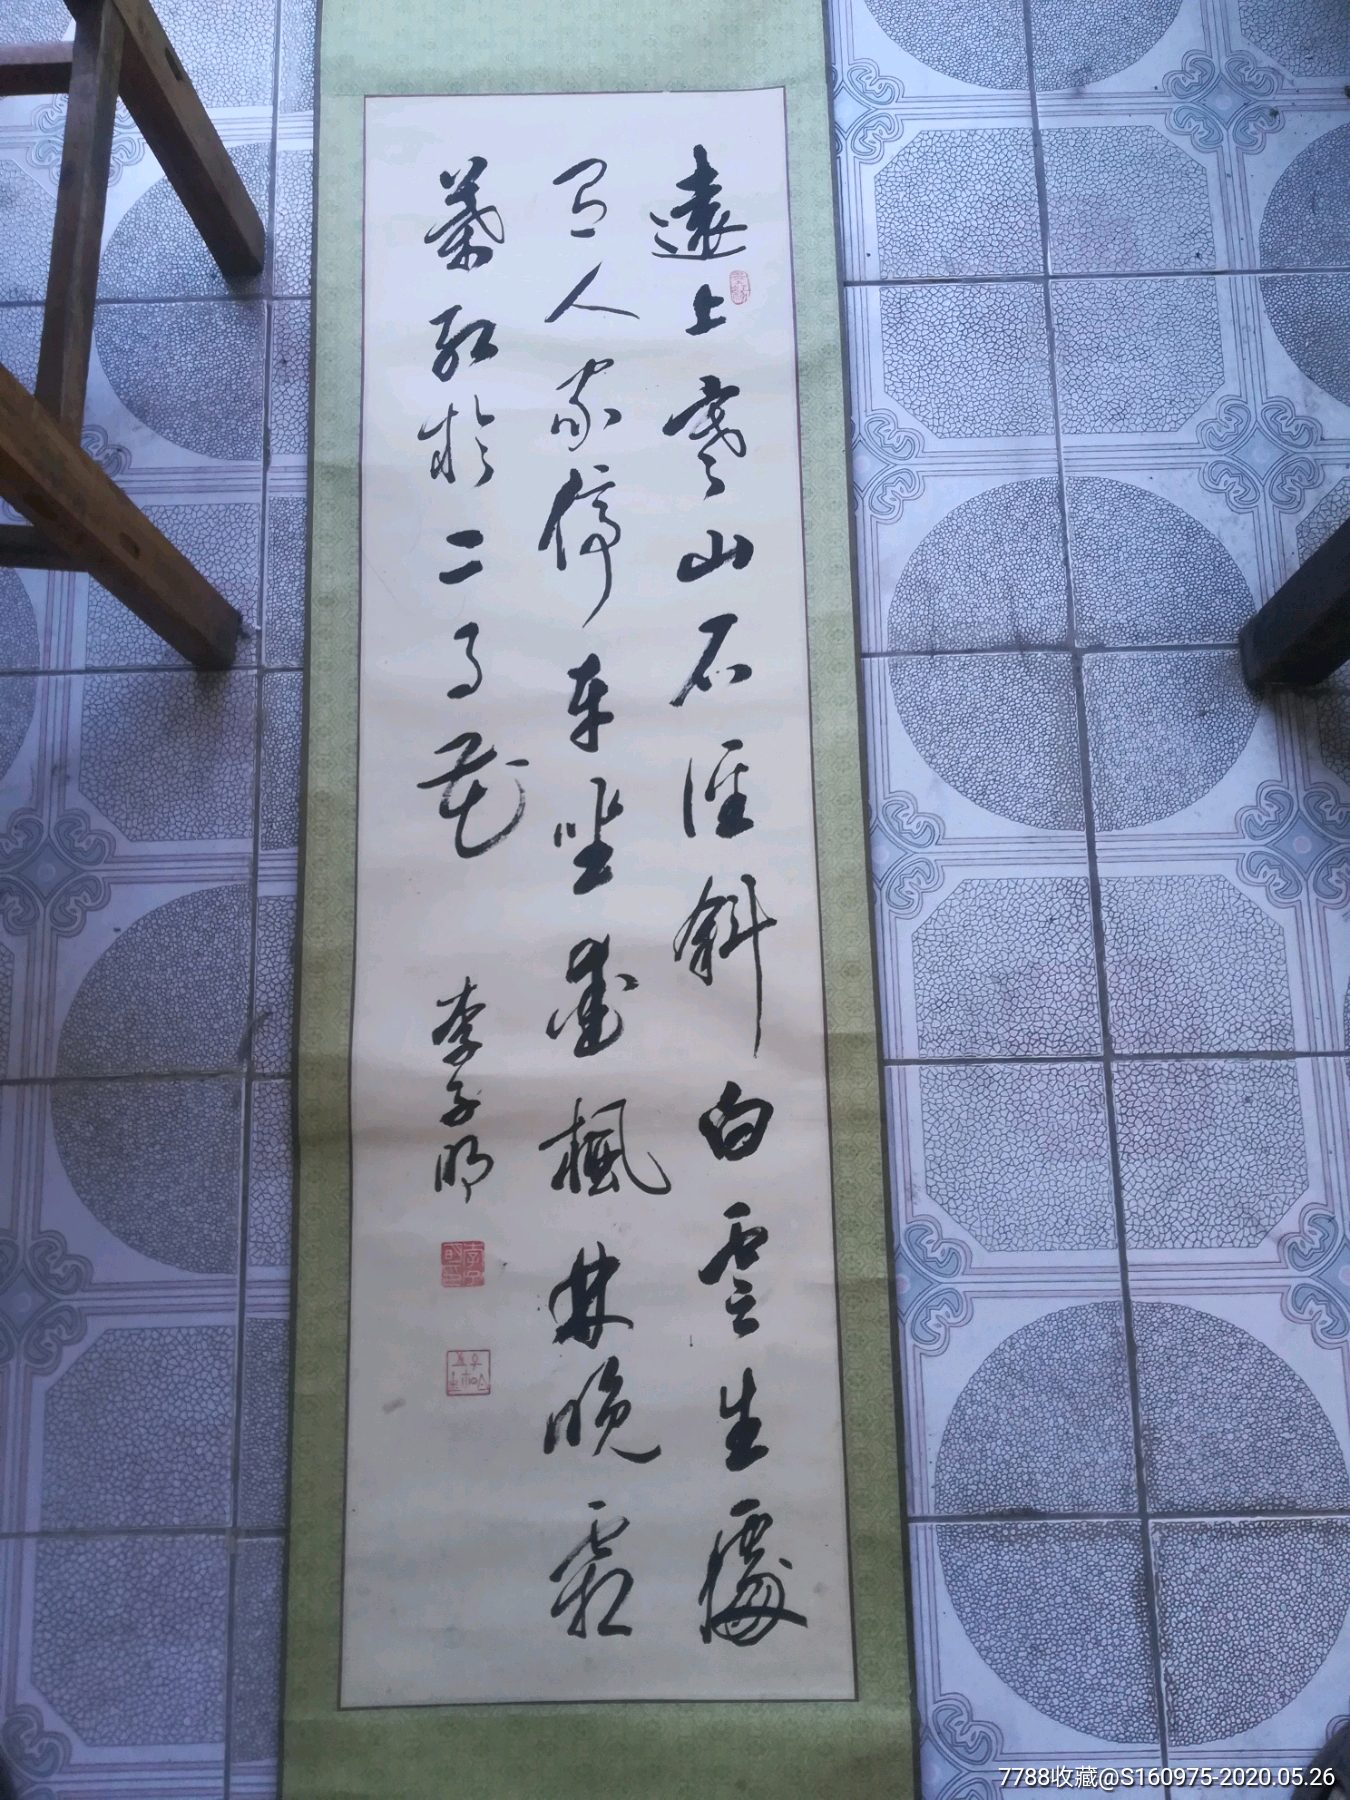 遠上寒山石徑斜白雲生處
有人家停車坐愛楓林晚霜
葉紅於二月花
李子明
李子明印
7788收藏@S160975-2020.05.26